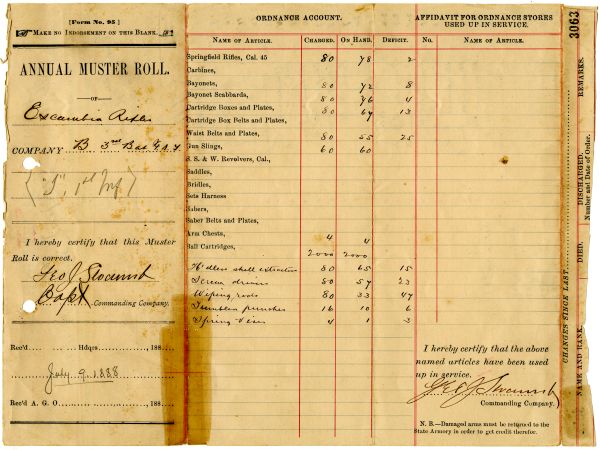 [Form No. 95]
Make no Indorsement on this Blank.
ANNUAL MUSTER ROLL.
—OF—
Escambia Rifles
COMPANY B 3rd Bat
1st Inf
I hereby certify that this Muster
Roll is correct.
Geo J
Capt Commanding Company.
Rec'd Hdqrs. 188
July 9. 1888
Rec'd A. G. O. 188
ORDNANCE ACCOUNT.
Name of Article. Charged. On Hand. Deficit.
Springfield Rifles, Cal. 45 80 78 2
Carbines,
Bayonets, 80 72 8
Bayonet Scabbards, 80 76 4
Cartridge Boxes and Plates, 80 67 13
Cartridge Box Belts and Plates,
Waist Belts and Plates, 80 55 25
Gun Slings, 60 60
S. S. & W. Revolvers, Cal.,
Saddles,
Bridles,
Sets Harness
Sabers,
Saber Belts and Plates,
Arm Chests, 4 4
Ball Cartridges, 2000 2000
Hdless shell extractors 80 65 15
Screw drivers 80 57 23
Wiping rods 80 33 47
Tumbler punches 16 10 6
Spring Vises 4 1 3
AFFIDAVIT FOR ORDNANCE STORES
USED UP IN SERVICE.
No. Name of Article.
I hereby certify that the above
named articles have been used
up in service.
Geo J
Commanding Company.
N. B.—Damaged arms must be returned to the
State Armory in order to get credit therefor.
3063
CHANGES SINCE LAST
NAME AND RANK. DIED. DISCHARGED. REMARKS.
Number and Date of Order.